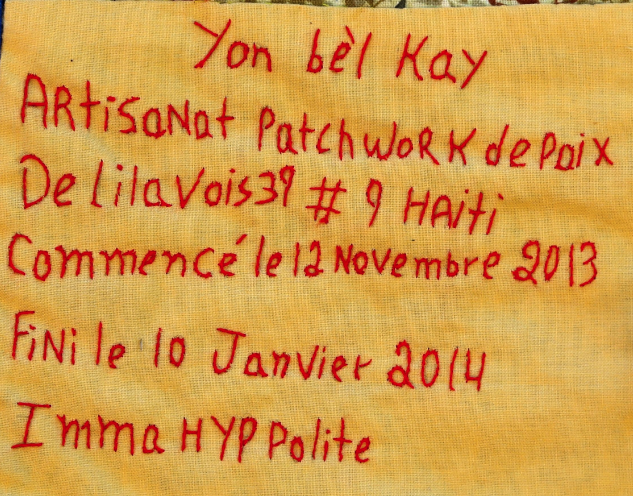 Yon bèl Kay
ARtiSaNat PatchwoRK de Paix
Delilavois 39 # 9 HAiti
Commencé le 12 Novembre 2013
FiNi le 10 Janvier 2014
Imma HYPPolite